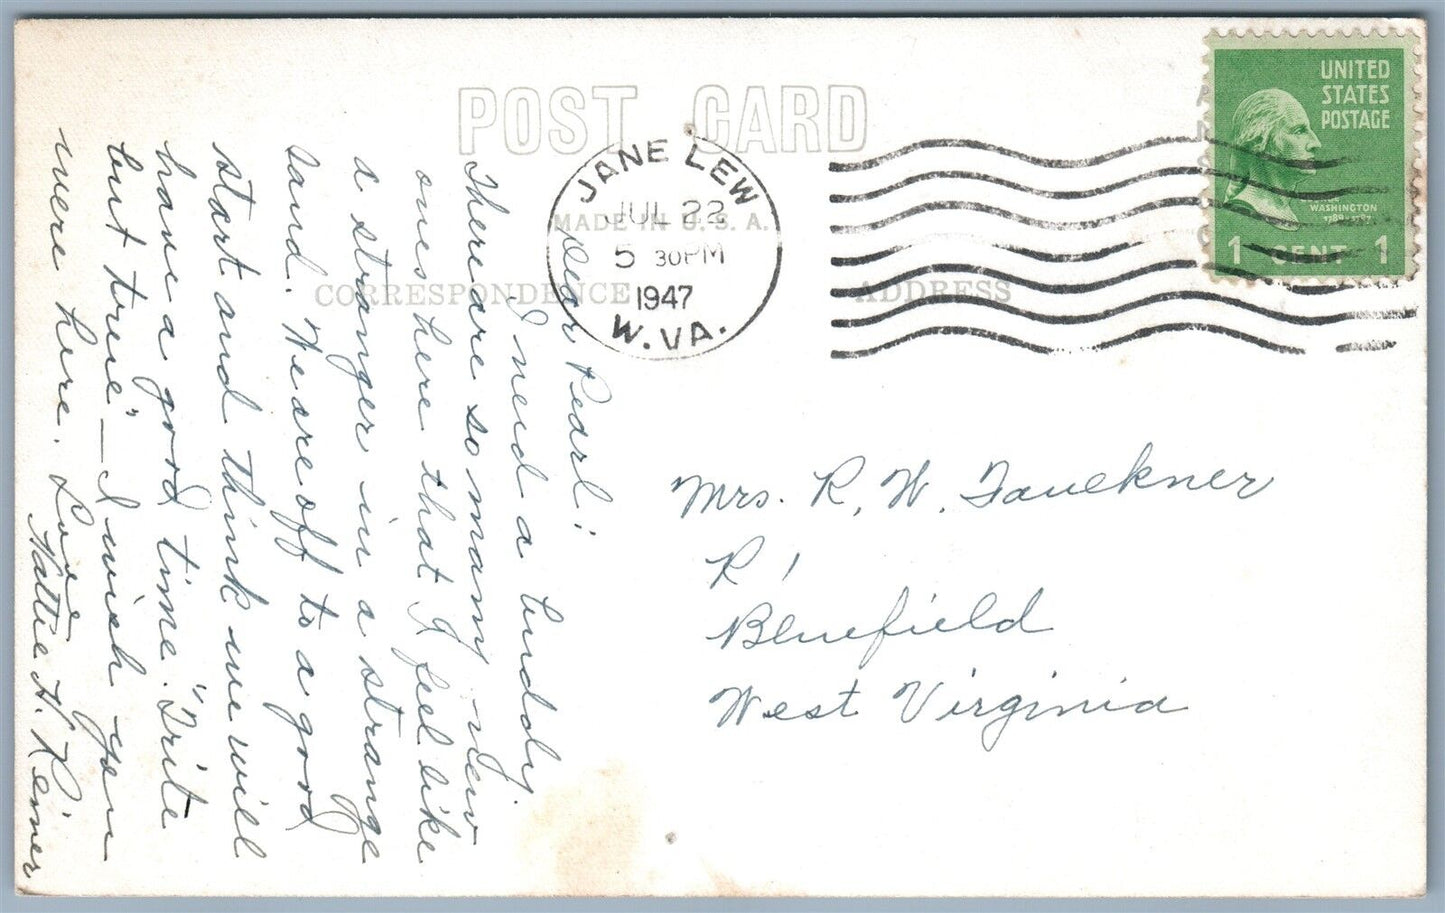 POST CARD
JANE LEW
JUL 22
5 30PM
1947
W.VA.
MADE IN U.S.A.
CORRESPONDENCE
ADDRESS
UNITED
STATES
POSTAGE
WASHINGTON
1789-1797
1 CENT 1
Dear Pearl:
I need a buddy.
There are so many new
ones here that I feel like
a stranger in a strange
land. We are off to a good
start and think we will
have a good time. "Trite
but true" — I wish you
were here. Love
Hattie H.
Mrs. R. W. Faulkner
R 1
Bluefield
West Virginia